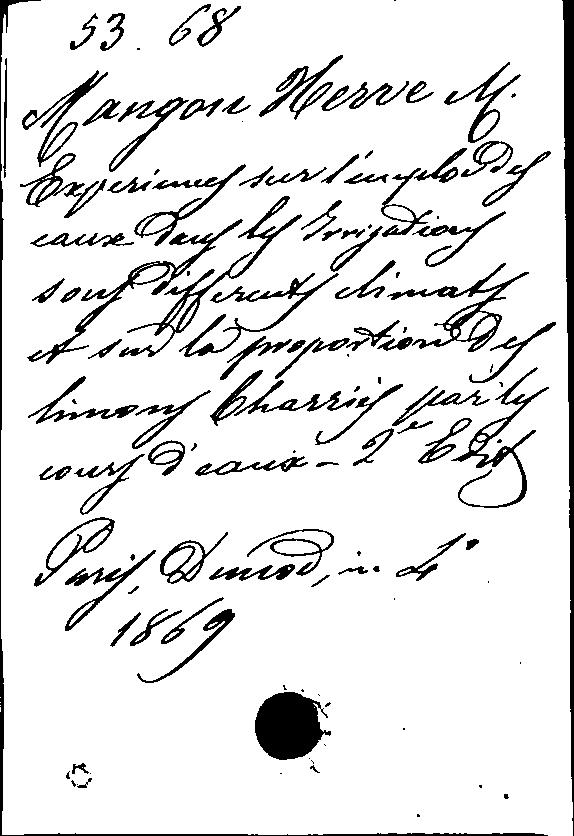 53. 68
Mangon Herve M.
Experiences sur l'emploi des
eaux dans les Irrigations
sous differents climats
et sur la proportion des
limons Charriés par les
cours d'eaux - 2e Edit
Paris, Dunod, in 4°
1869